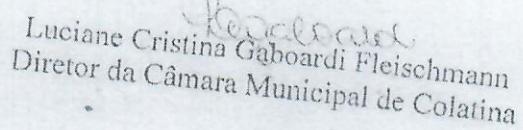 Luciane Cristina Gaboardi Fleischmann
Diretor da Câmara Municipal de Colatina